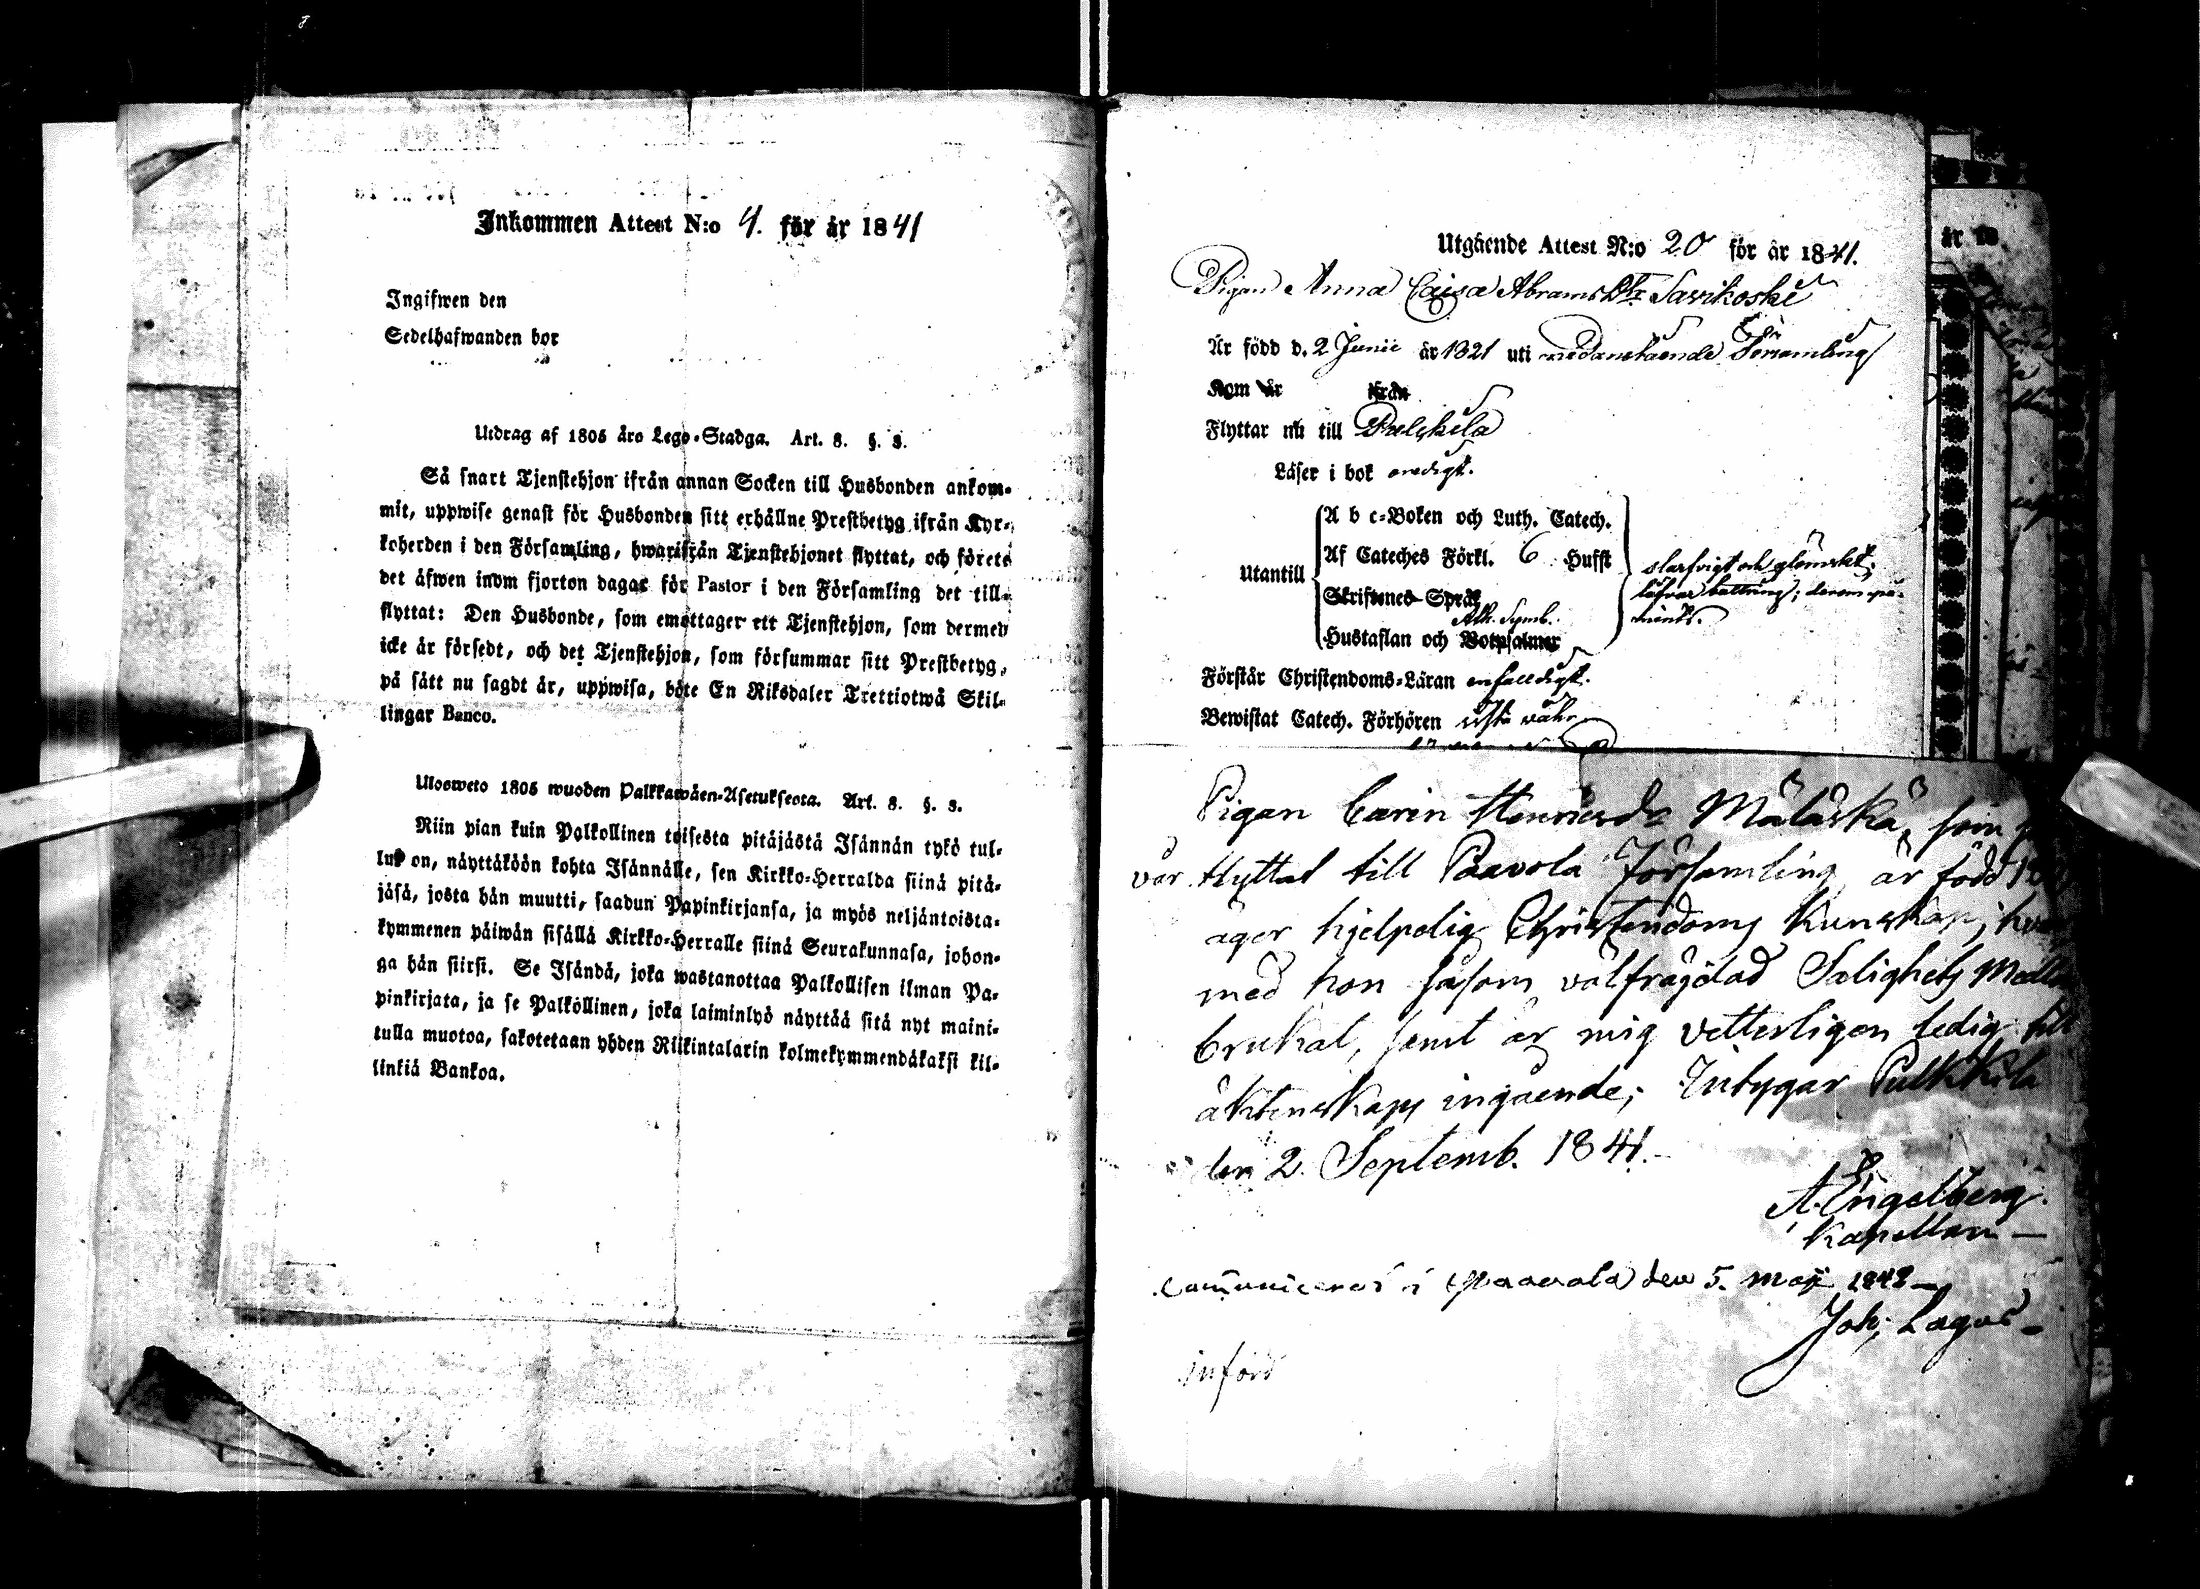 Inkommen Attest N:o 4. för år 1841
Ingifwen den
Sedelhafwanden bor
Utdrag af 1805 års Lego-Stadga. Art. 8. §. 3.
Så snart Tjenstehjon ifrån annan Socken till Husbonden ankom-
mit, uppwise genast för Husbonden sitt erhållne Prestbetyg ifrån Kyr-
koherden i den Församling, hwarifrån Tjenstehjonet flyttat, och förete
det äfwen inom fjorton dagar för Pastor i den Församling det till-
flyttat: Den Husbonde, som emottager ett Tjenstehjon, som dermed
icke är försedt, och det Tjenstehjon, som försummar sitt Prestbetyg,
på sätt nu sagdt är, uppwisa, böte En Riksdaler Trettiotwå Skil-
lingar Banco.
Ulosweto 1805 wuoden Palkkawäen-Asetuksesta. Art. 8. §. 3.
Niin pian kuin Palkollinen toisesta pitäjästä Isännän tykö tul-
lut on, näyttäköön kohta Isännälle, sen Kirkko-Herralda siinä pitä-
jäsä, josta hän muutti, saadun Papinkirjansa, ja myös neljäntoista-
kymmenen päiwän sisällä Kirkko-Herralle siinä Seurakunnasa, johon-
ga hän siirsi. Se Isändä, joka wastanottaa Palkollisen ilman Pa-
pinkirjata, ja se Palkollinen, joka laiminlyö näyttää sitä nyt maini-
tulla muotoa, sakotetaan yhden Riikintalarin kolmekymmendäkaksi kil-
linkiä Bankoa.
Utgående Attest N:o 20 för år 1841.
Pigan Anna Caisa Abrams Dtr Savikoski
Är född d. 2 Junii år 1821 uti nedanstående Församling
Kom år ifrån
Flyttar nu till Pulckila
Läser i bok redigt.
A b c-Boken och Luth. Catech.
Utantill Af Cateches Förkl. 6 Hufst slarfvigt och glömskt;
Skriftenes Språk lofvar bättring;
Ath. Symb.
Hustaflan och Botpsalmer
Förstår Christendoms-Läran enfalldigt.
Bewistat Catech. Förhören
Pigan Carin Henricsdr Mälaskä, som
vår flyttat till Paavola Församling, är född
äger hjelpelig Christendoms kunskap,
med hon såsom välfrägdad Salighets Medlen
brukat, samt är mig vetterligen ledig till
äktenskaps ingående; Intygar Pulkkila
den 2. Septemb. 1841.
A. Engelberg.
Kapellan
Communicerat i Paavola den 5. Maji 1842
Joh; Lagus
införd